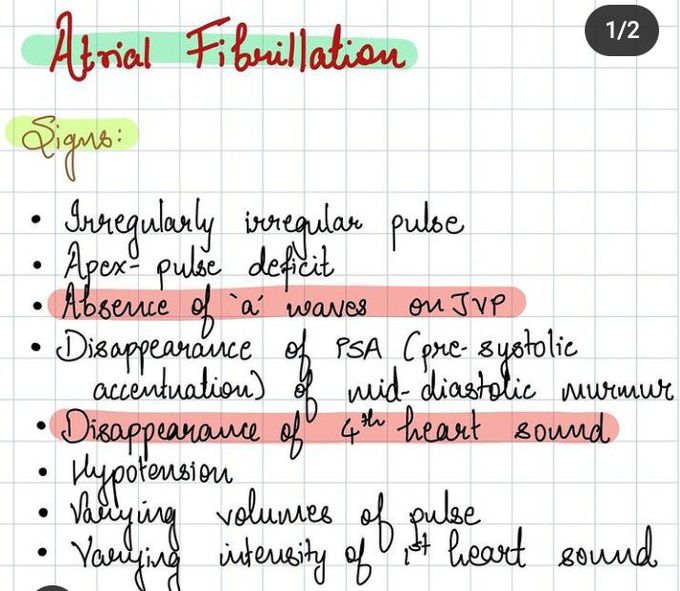 1/2
Atrial Fibrillation
Signs:
• Irregularly irregular pulse
• Apex- pulse deficit
• Absence of 'a' waves on JVP
• Disappearance of PSA (pre-systolic
accentuation) of mid-diastolic murmur
• Disappearance of 4th heart sound
• Hypotension
• Varying volumes of pulse
• Varying intensity of 1st heart sound